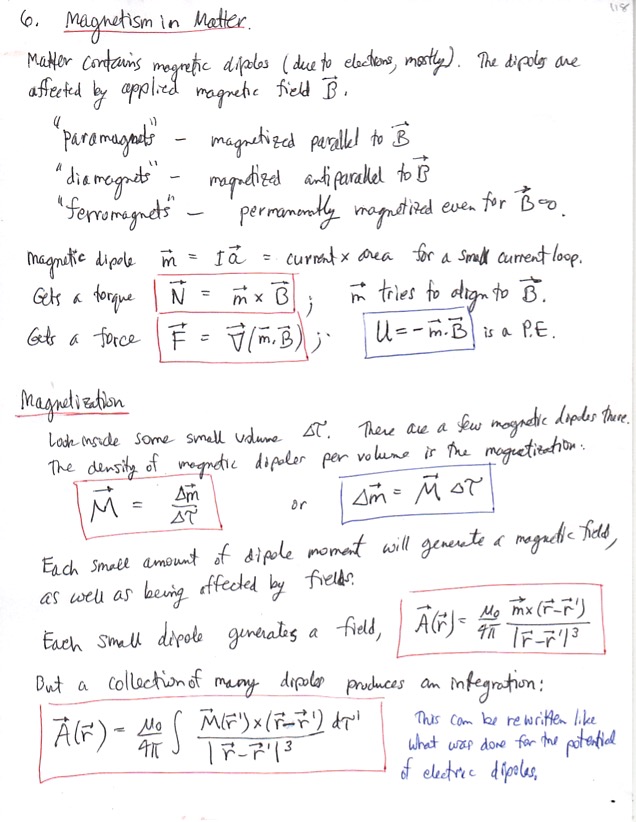 118
6. Magnetism in Matter.
Matter contains magnetic dipoles (due to electrons, mostly). The dipoles are
affected by applied magnetic field B⃗.
"paramagnets" – magnetized parallel to B⃗
"diamagnets" – magnetized antiparallel to B⃗
"ferromagnets" – permanently magnetized even for B⃗=0.
magnetic dipole m⃗ = I a⃗ = current x area for a small current loop.
Gets a torque N⃗ = m⃗ x B⃗ ; m⃗ tries to align to B⃗.
Gets a force F⃗ = ∇⃗(m⃗·B⃗) ; U = -m⃗·B⃗ is a P.E.
Magnetization
Look inside some small volume Δτ. There are a few magnetic dipoles there.
The density of magnetic dipoles per volume is the magnetization:
M⃗ = Δm⃗/Δτ or Δm⃗ = M⃗ Δτ
Each small amount of dipole moment will generate a magnetic field,
as well as being affected by fields.
Each small dipole generates a field, A⃗(r⃗) = μ₀/4π m⃗x(r⃗-r⃗')/|r⃗-r⃗'|³
But a collection of many dipoles produces an integration:
A⃗(r⃗) = μ₀/4π ∫ M⃗(r⃗')x(r⃗-r⃗')/|r⃗-r⃗'|³ dτ'
This can be rewritten like
what was done for the potential
of electric dipoles.